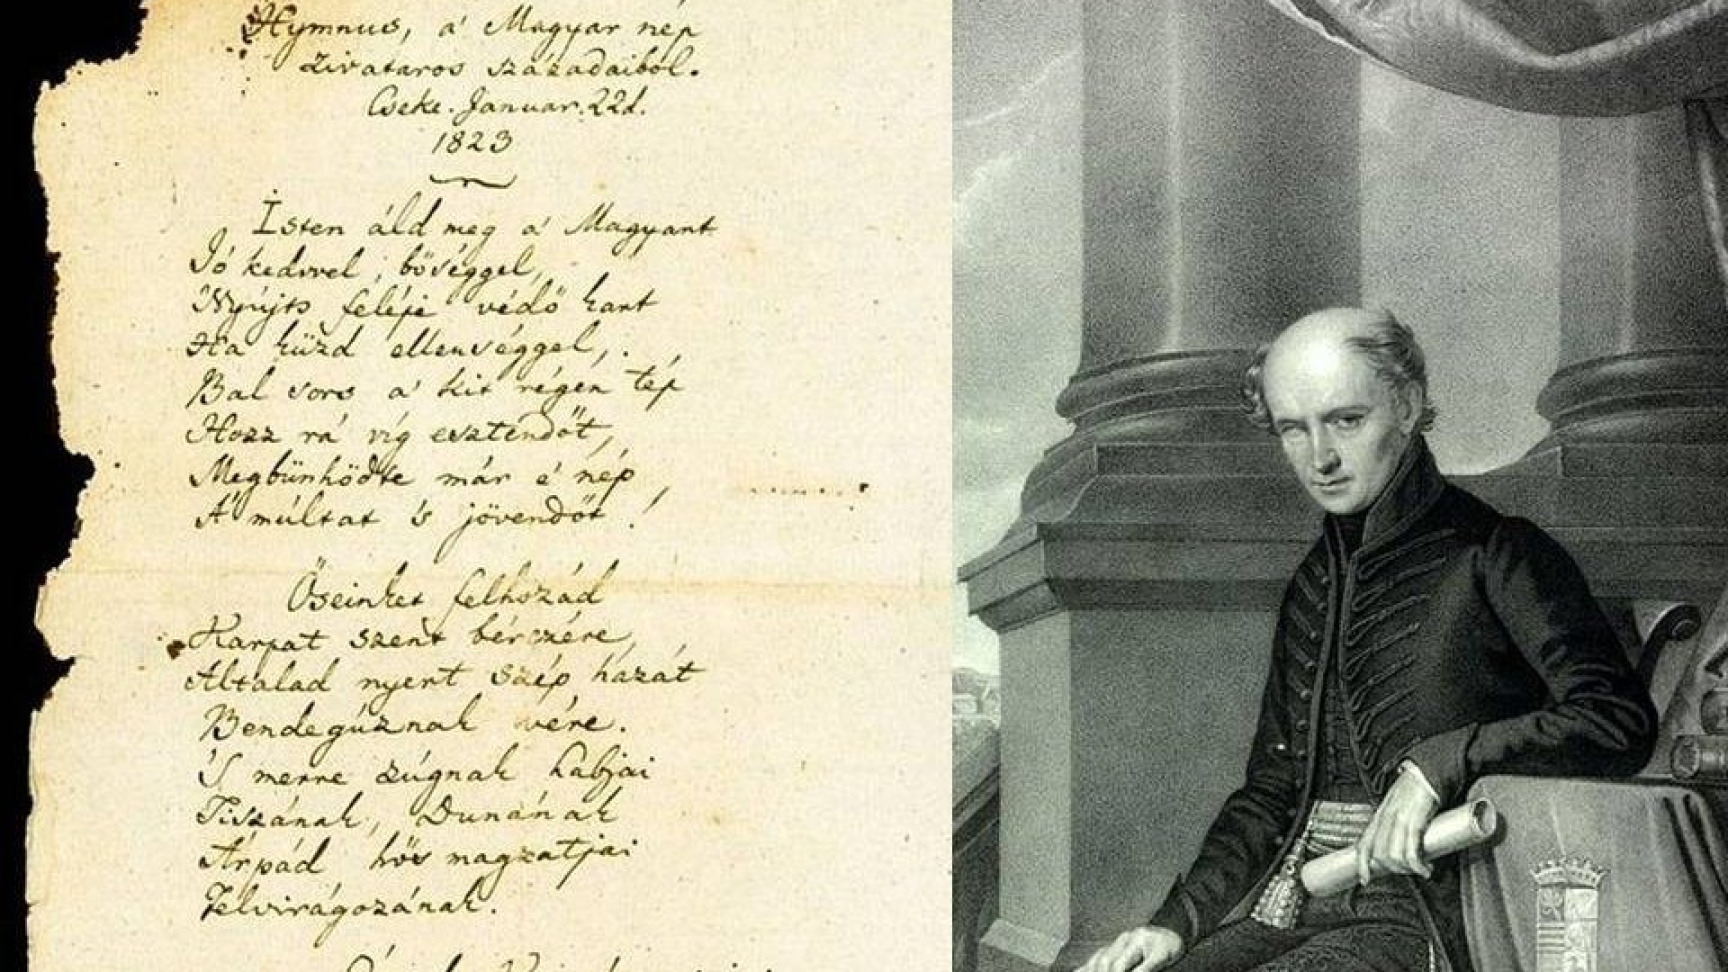 Hymnus, a' Magyar nép
zivataros századaiból.
Cseke. Januar. 22d.
1823
Isten áld meg a' Magyart
Jó kedvvel, bőséggel,
Nyújts feléje védő kart
Ha küzd ellenséggel,
Bal sors a' kit régen tép
Hozz rá víg esztendőt,
Megbünhödte már e' nép
A' múltat 's jövendőt!
Őseinket felhozád
Karpat szent bérczére,
Általad nyert szép hazát
Bendegúznak vére.
'S merre zúgnak habjai
Tiszának, Dunának
Árpád hős magzatjai
Felvirágozának.